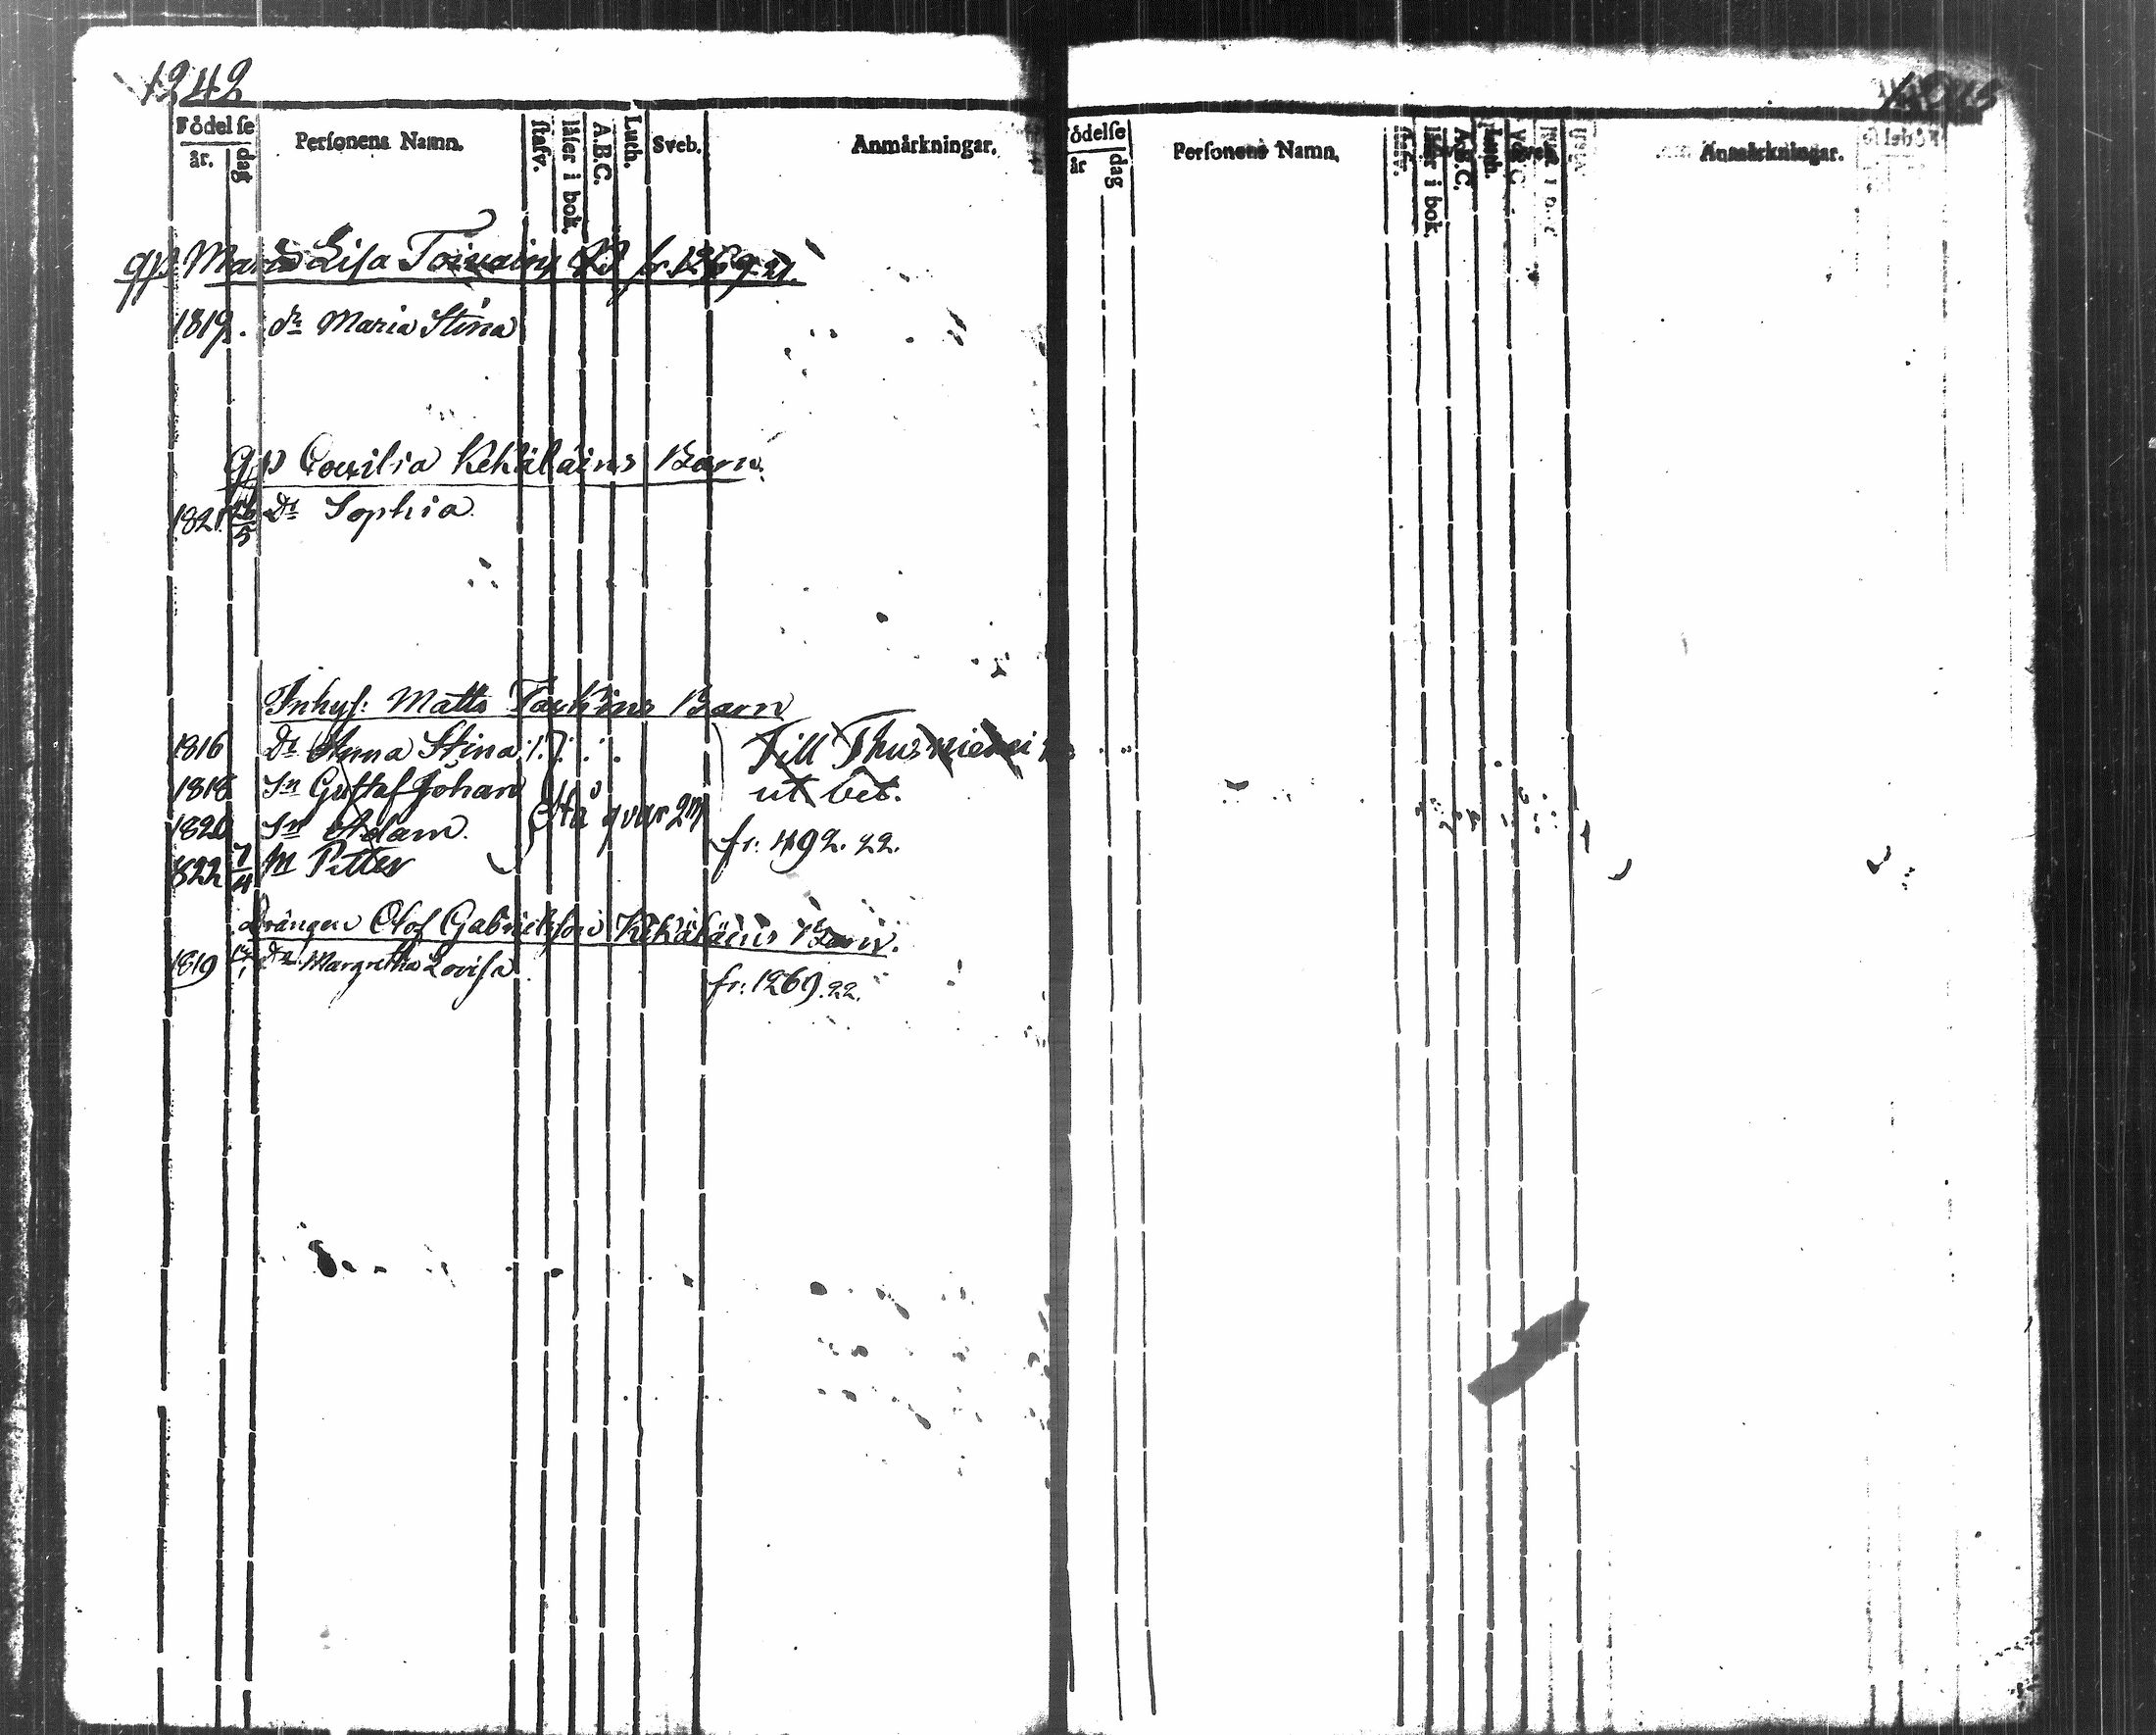 1242
Födelse
år.
dag
Personens Namn.
stafv.
läser i bok.
A.B.C.
Luth.
Sveb.
Anmärkningar.
qp Maria Lisa Toivains fr. 1269.21.
1819. dr Maria Stina
qp Cecilia Kekäläins Barn.
1821 26/5 Dr Sophia
Inhys: Matts Barn
1816 Dr Anna Stina Till
1818 Sn Gustaf Johan ut bet.
1820 Sn Adam qvar fr: 1192.22.
822 7/4 Petter
Drängen Olof Gabrielsson Kekäläins Barn.
1819 Dr Margretha Lovisa
fr: 1269.22.
ödelse
år
dag
Personens Namn,
läser i bok.
A.B.C.
Luth.
Anmärkningar.